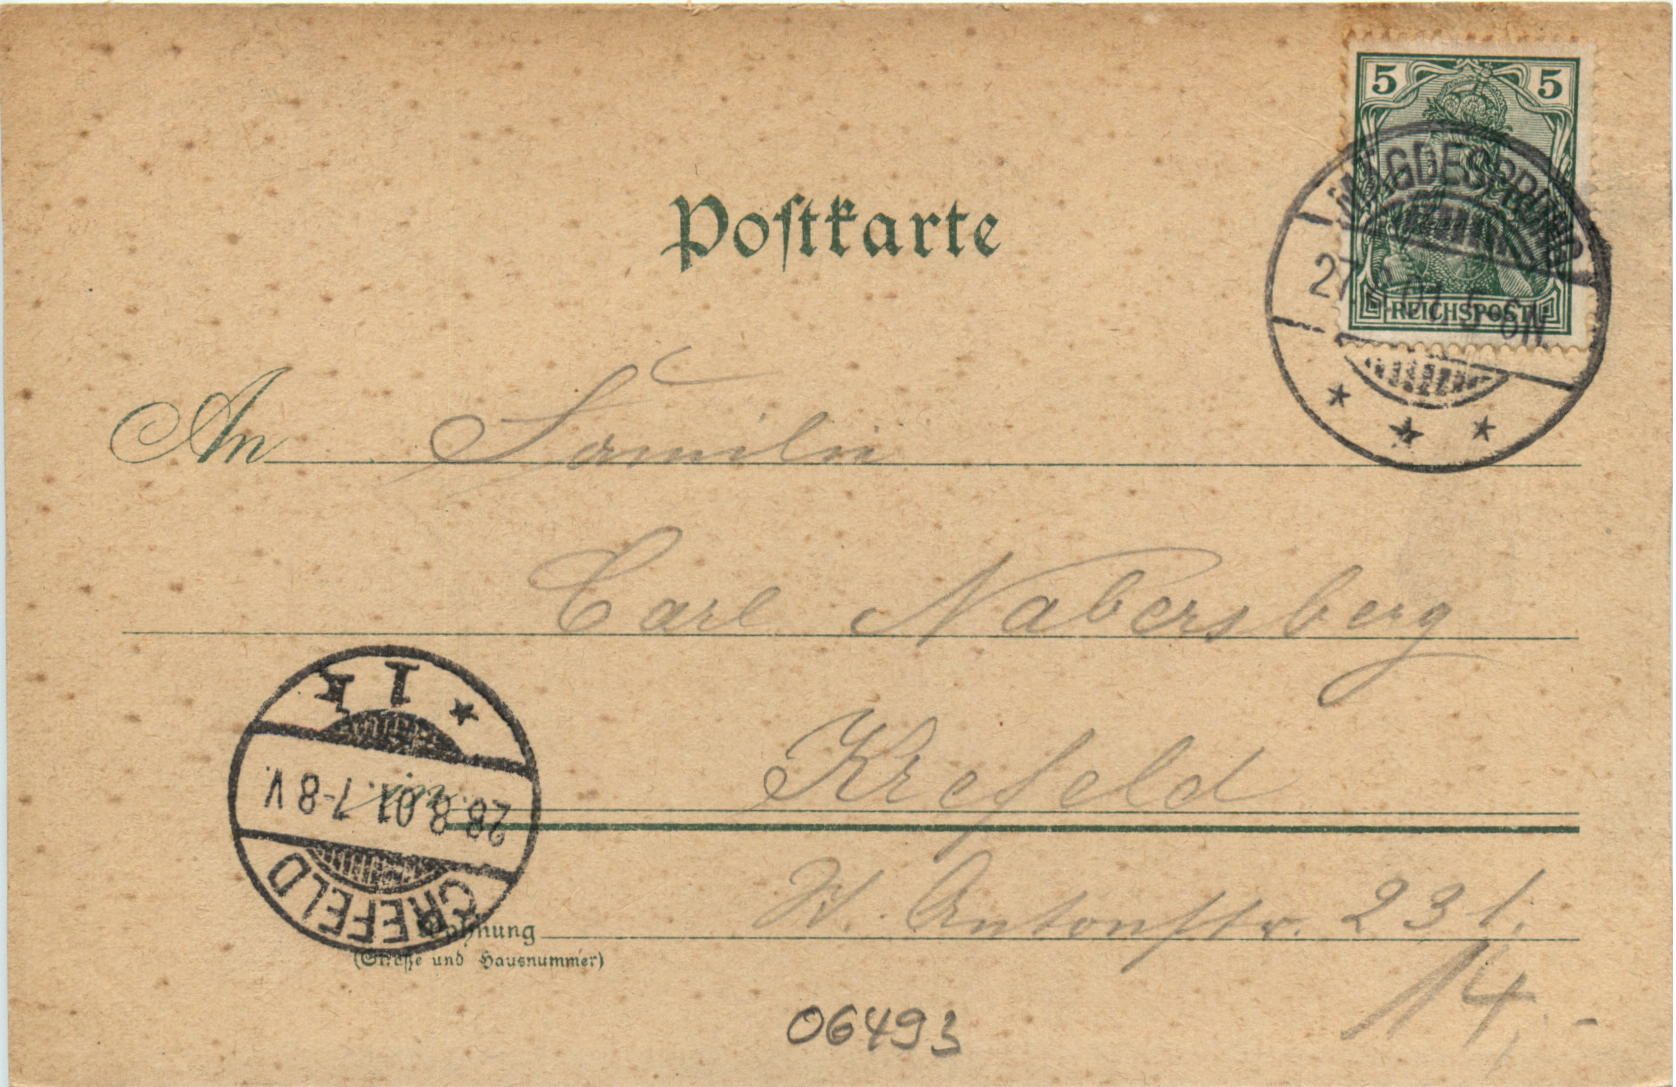 5 5
MÄGDESPRUNG
27.8.01. 5-6N
REICHSPOST
Postkarte
An Familie
Carl Nabersberg
in Krefeld
W. Antonstr. 231.
Wohnung
(Straße und Hausnummer)
CREFELD
28.8.01.7-8V.
* 1 k
06493
14,-